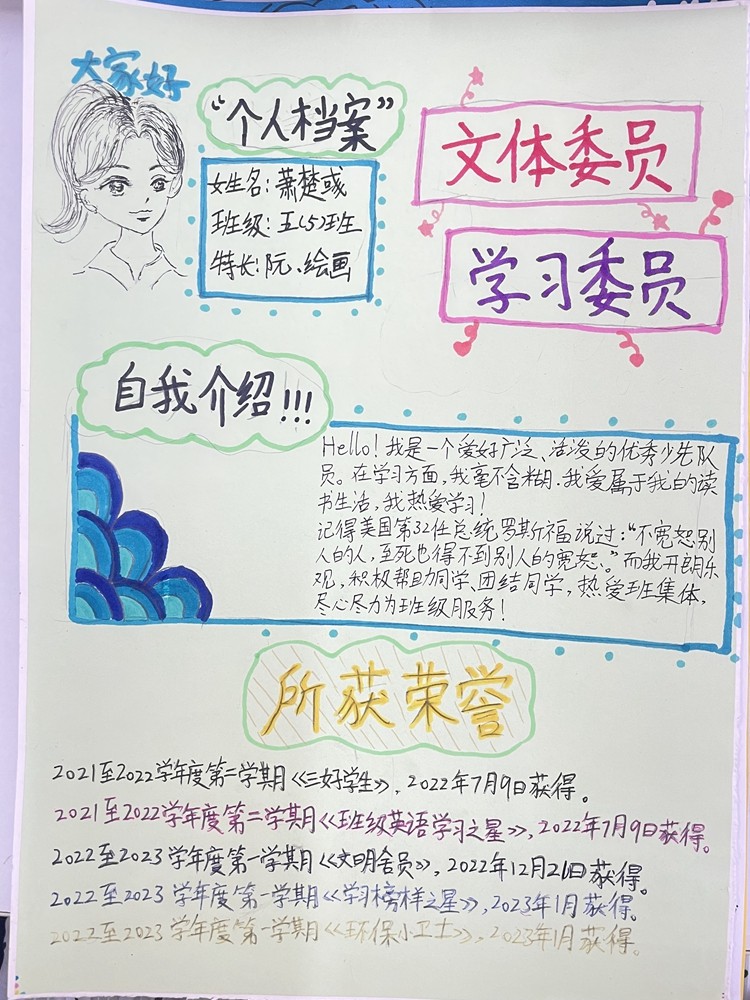 大家好
“个人档案”
女生名：萧楚彧
班级：五(5)班生
特长：阮、绘画
文体委员
学习委员
自我介绍!!!
Hello！我是一个爱好广泛、活泼的优秀少先队
员。在学习方面，我毫不含糊.我爱属于我的读
书生活，我热爱学习！
记得美国第32任总统罗斯福说过：“不宽恕别
人的人，至死也得不到别人的宽恕。”而我开朗乐
观，积极帮助同学、团结同学，热爱班集体，
尽心尽力为班级服务！
所获荣誉
2021至2022学年度第二学期《三好学生》，2022年7月9日获得。
2021至2022学年度第二学期《班级英语学习之星》，2022年7月9日获得。
2022至2023学年度第一学期《文明舍员》，2022年12月21日获得。
2022至2023学年度第一学期《学习榜样之星》，2023年1月获得。
2022至2023学年度第一学期《环保小卫士》，2023年1月获得。